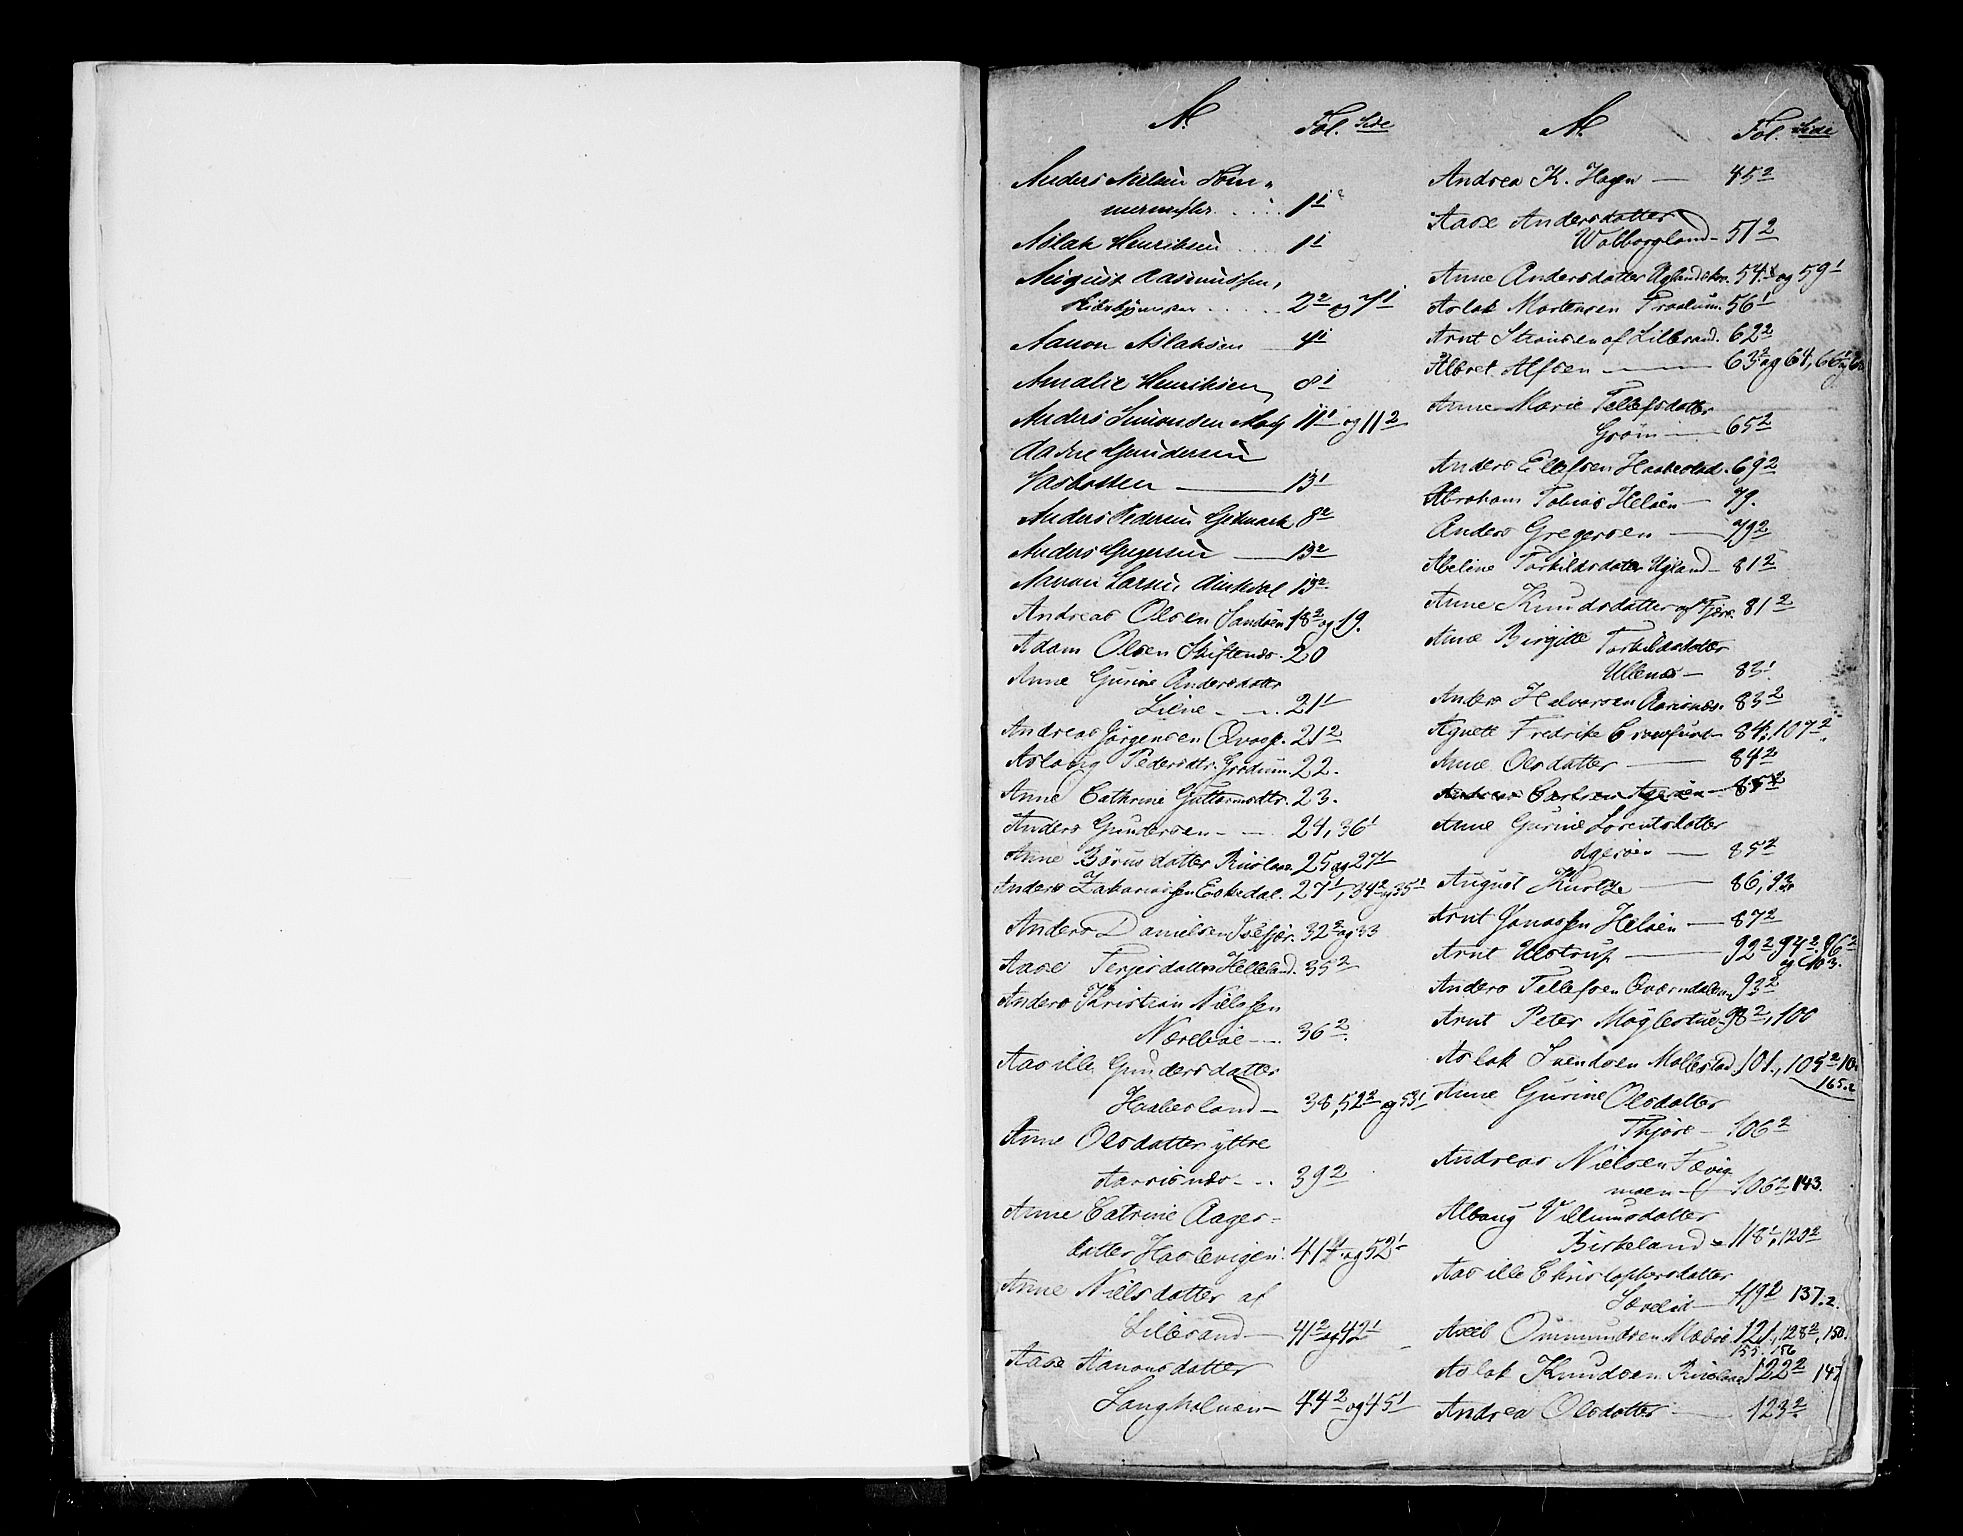 A.
Fol. Side
Anders Nielsen Tøm-
mermester . . . . 1 1
Aslak Henriksen . . . . 1 1
August Rasmussen,
2 2 og 7 1
Aanon Aslaksen 4 1
Amalie Henriksen 8 1
Anders Simonsen Moy 11 1 og 11 2
Aadne Gundersen
13 1
Anders Pedersen 8 2
Anders Gregersen — 13 2
Aanon Larsen 13 2
Andreas Olsen Sandøen 18 2 og 19.
Adam Olsen Skiftenæs. 20
Anne Gurine Andersdatter
Liene - - . 21 1
Andreas Jørgensen Qvasp. 21 2
Aslaug Pedersdtr. Grødum. 22.
Anne Cathrine Guttormsdtr. 23.
Anders Gundersen - — 24, 36 1
Anne Børus datter Risland 25 og 27 1
Anders Zakariasen Eskedal. 27 1, 34 2 og 35 1
Anders Danielsen Isefjær. 32 2 og 33
Aase Terjesdatter Helleland. 35 2
Anders Kristian Nielssen
Nærebøe - . . 36 2
Aasille Gundersdatter
Haaberland - 38, 52 2 og 53 1
Anne Olsdatter ytre
Aarrisnæs - . . 39 2
Anne Catrine Aages-
datter Haslevigen. 41 1 og 52 1
Anne Nielsdatter af
Lillesand — 41 2 og 42 1
Aase Aanonsdatter
Langholmen — 44 2 og 45 1
A.
Fol. Side
Andrea K. Hagen — 45 2
Aase Andersdatter
Walborgland - 51 2
Anne Andersdatter 54 1 og 59 1
Aslak Mortensen Traalum. 56 1
Arnt Strømsen af Lillesand. 62 2
Albret Alfsen — 63 2 og 64, 66 2
Anne Marie Tellefsdatter
Grøm — 65 2
Anders Ellefsen Haabestad. 69 2
Abraham Tobias Helsen — 79.
Anders Gregersen — 79 2
Abeline Torkildsdatter Ugland - 81 2
Anne Knudsdatter af Tjøre 81 2
Anne Birgitte Torkildsdatter
Ullenæs — 83 1.
Anders Halvorsen Aarisnæs. 83 2
Agnete Fredrike Crawfurt - 84, 107 2.
Anne Olsdatter — 84 2
Andreas Carlsen Agerøen - 85 2
Anne Gurine Lorentsdatter
Agerøen — 85 2
August Kurtze — 86, 93.
Arnt Jonassen Helsen — 87 2
Arnt Ulstrup — 92 2, 94 2, 96 2
og 103.
Anders Tellefsen Qværndalen 93 2
Arnt Peter Møglestue 98 2, 100
Aslak Svendsen Mollestad. 101, 105 2
165.2
Anne Gurine Olsdatter
Thjøre — 106 2
Andreas Nielsen Fævig
moen — 106 2 143.
Albang Villumsdatter
Birkeland - 118 1, 120 2
Aasille Christophersdatter
119 2 137.2.
Axel Ommundsen Mæbø 121, 128 2, 150.
155. 156
Aslak Knudsen Risland 122 2 147
Andrea Olsdatter — 123 2